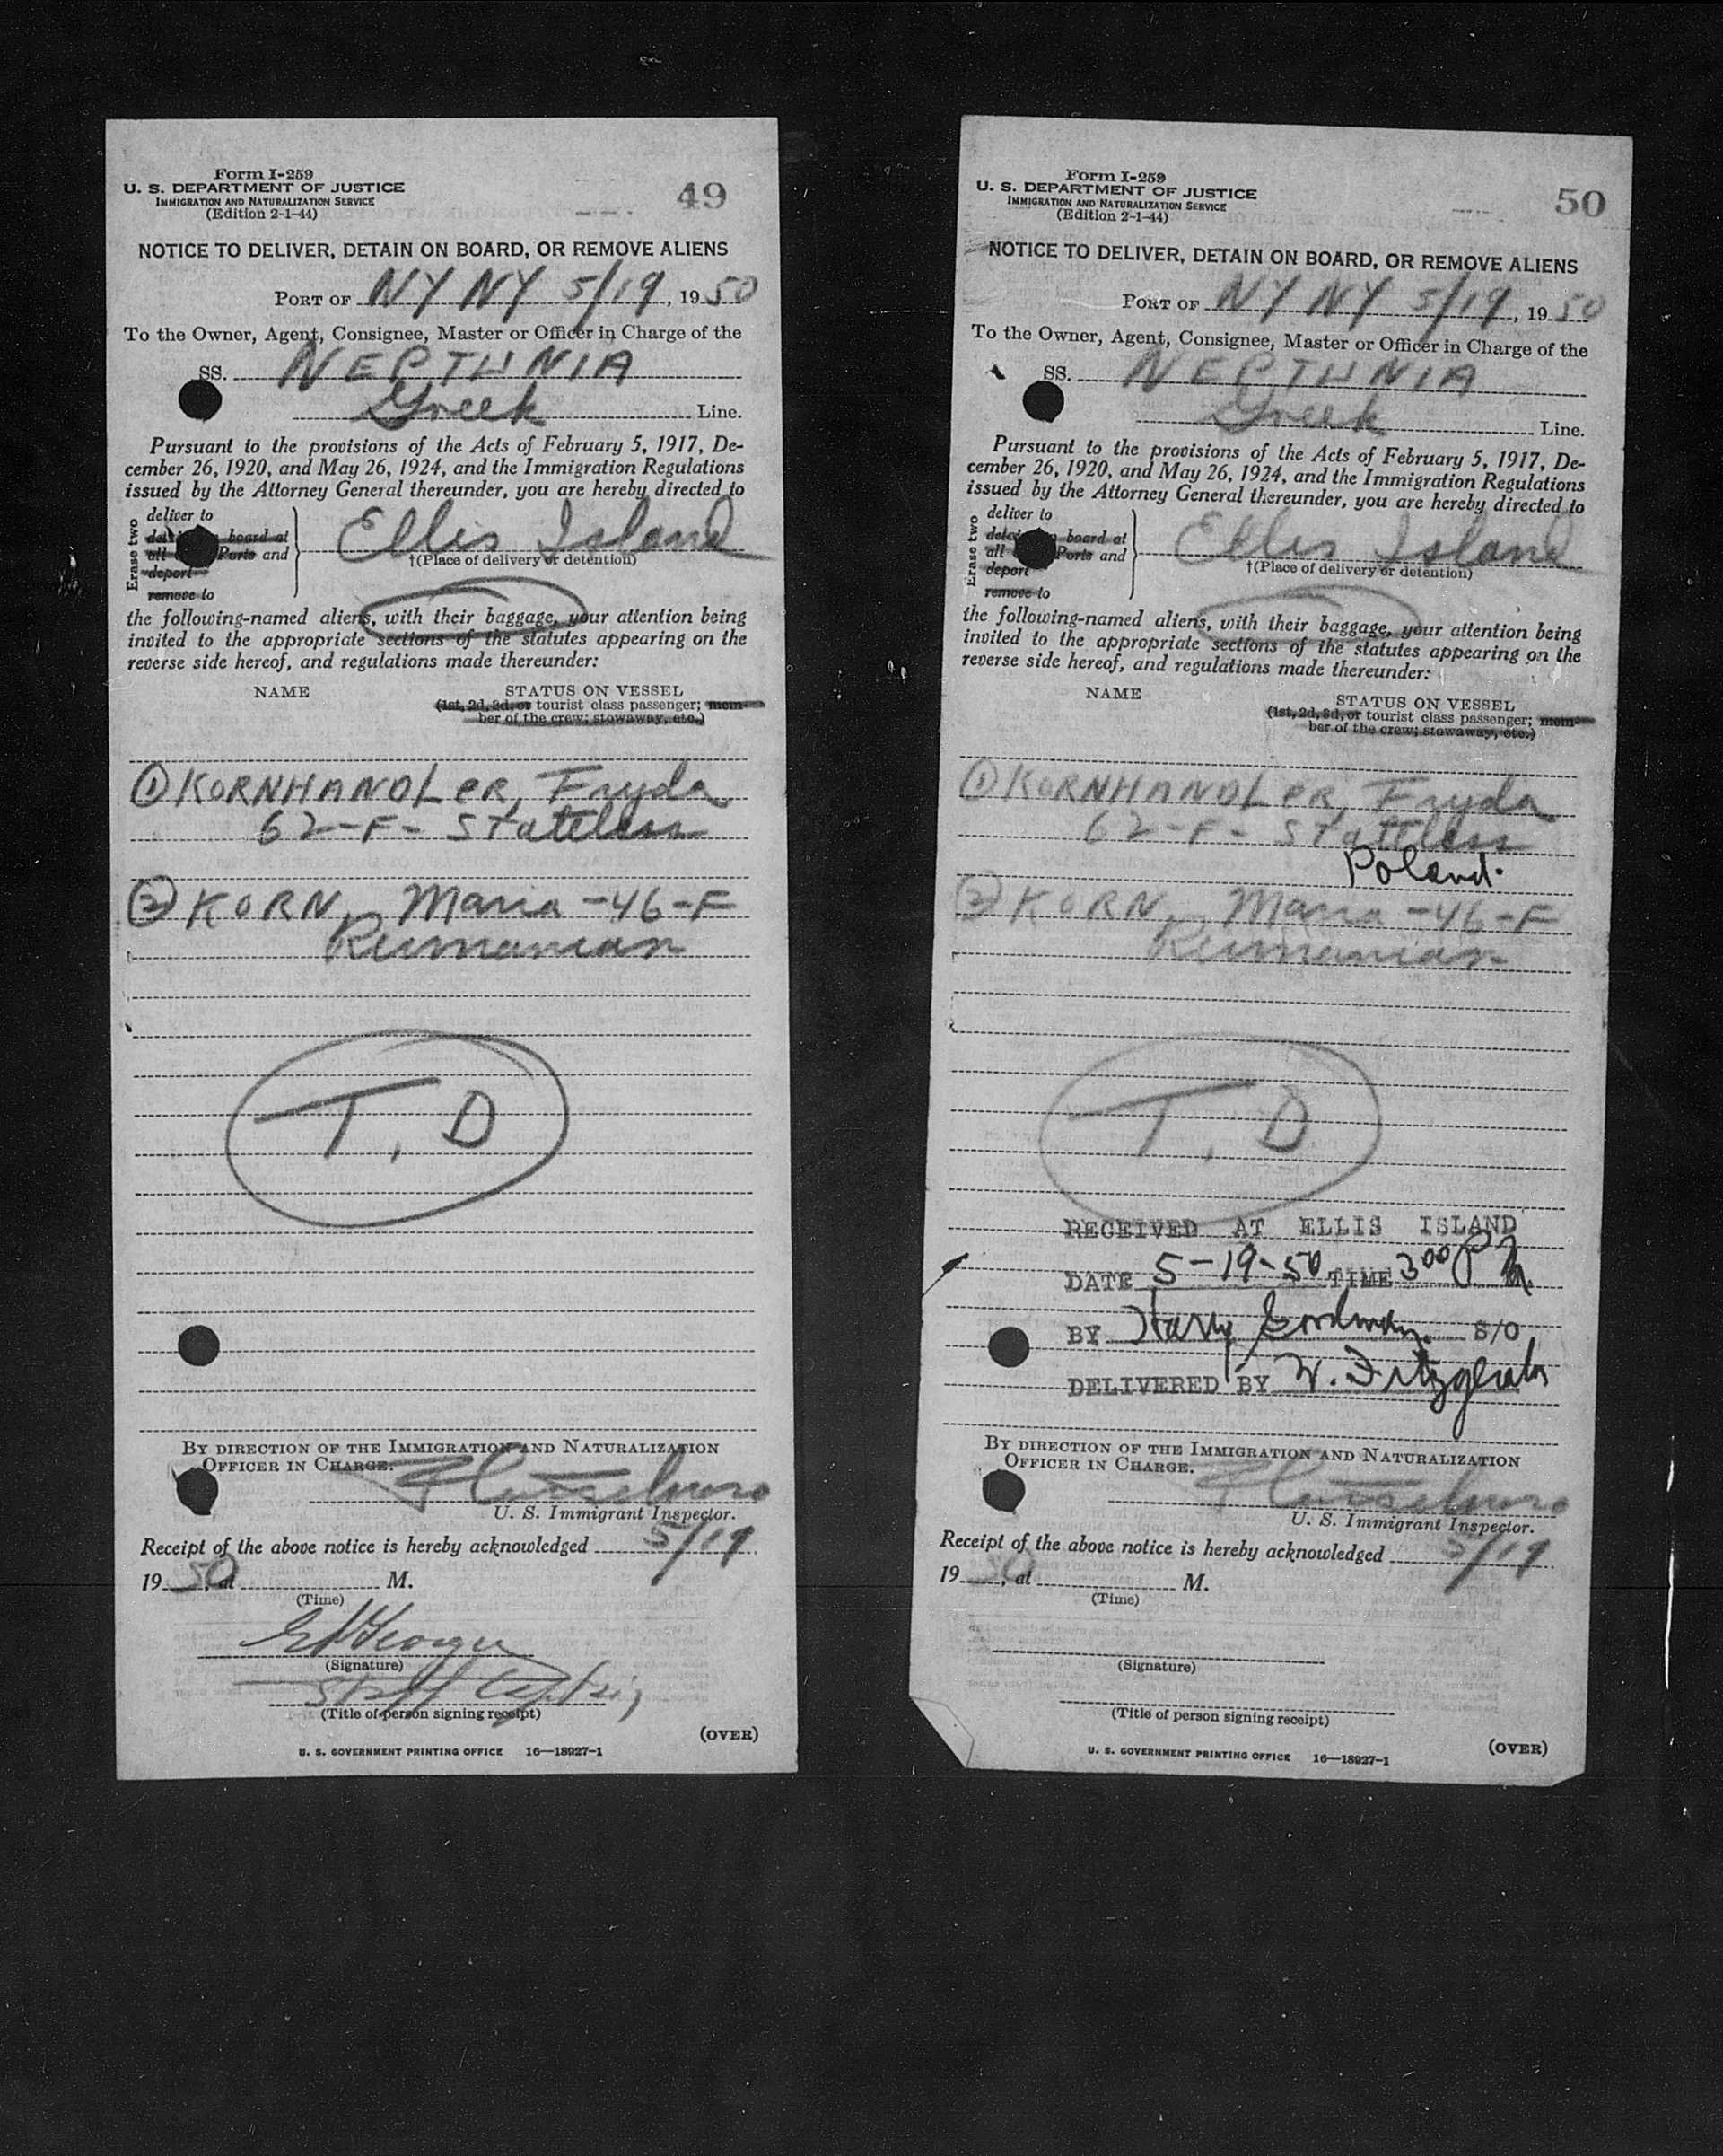 Form I-259
U. S. DEPARTMENT OF JUSTICE
IMMIGRATION AND NATURALIZATION SERVICE
(Edition 2-1-44)
49
NOTICE TO DELIVER, DETAIN ON BOARD, OR REMOVE ALIENS
PORT OF NY NY 5/19, 1950
To the Owner, Agent, Consignee, Master or Officer in Charge of the
SS. NEPTUNIA
Greek Line.
Pursuant to the provisions of the Acts of February 5, 1917, De-
cember 26, 1920, and May 26, 1924, and the Immigration Regulations
issued by the Attorney General thereunder, you are hereby directed to
Erase two
deliver to
board at
all Ports and
deport
remove to
Ellis Island
†(Place of delivery or detention)
the following-named aliens, with their baggage, your attention being
invited to the appropriate sections of the statutes appearing on the
reverse side hereof, and regulations made thereunder:
NAME STATUS ON VESSEL
(1st, 2d, 3d, or tourist class passenger; mem-
ber of the crew; stowaway, etc.)
① KORNHANDLER, Fryda
62-F- Stateless
② KORN, Maria -46-F
Rumanian
T, D
BY DIRECTION OF THE IMMIGRATION AND NATURALIZATION
OFFICER IN CHARGE.
U. S. Immigrant Inspector.
Receipt of the above notice is hereby acknowledged 5/19
1950, at M.
(Time)
(Signature)
(Title of person signing receipt)
(OVER)
U. S. GOVERNMENT PRINTING OFFICE 16—18927-1
Form I-259
U. S. DEPARTMENT OF JUSTICE
IMMIGRATION AND NATURALIZATION SERVICE
(Edition 2-1-44)
50
NOTICE TO DELIVER, DETAIN ON BOARD, OR REMOVE ALIENS
PORT OF NY NY 5/19, 1950
To the Owner, Agent, Consignee, Master or Officer in Charge of the
SS. NEPTUNIA
Greek Line.
Pursuant to the provisions of the Acts of February 5, 1917, De-
cember 26, 1920, and May 26, 1924, and the Immigration Regulations
issued by the Attorney General thereunder, you are hereby directed to
Erase two
deliver to
board at
all Ports and
deport
remove to
Ellis Island
†(Place of delivery or detention)
the following-named aliens, with their baggage, your attention being
invited to the appropriate sections of the statutes appearing on the
reverse side hereof, and regulations made thereunder:
NAME STATUS ON VESSEL
(1st, 2d, 3d, or tourist class passenger; mem-
ber of the crew; stowaway, etc.)
① KORNHANDLER, Fryda
62-F- Stateless
Poland.
② KORN, Maria -46-F
Rumanian
T, D
RECEIVED AT ELLIS ISLAND
DATE 5-19-50 TIME 3 00 P M.
BY Harry S/O
DELIVERED BY W. Fitzgerald
BY DIRECTION OF THE IMMIGRATION AND NATURALIZATION
OFFICER IN CHARGE.
U. S. Immigrant Inspector.
Receipt of the above notice is hereby acknowledged 5/19
1950, at M.
(Time)
(Signature)
(Title of person signing receipt)
(OVER)
U. S. GOVERNMENT PRINTING OFFICE 16—18927-1